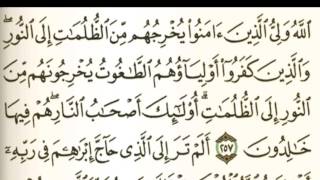 اللَّهُ وَلِيُّ الَّذِينَ ءَامَنُوا يُخْرِجُهُم مِّنَ الظُّلُمَاتِ إِلَى النُّورِ ۖ
وَالَّذِينَ كَفَرُوا أَوْلِيَاؤُهُمُ الطَّاغُوتُ يُخْرِجُونَهُم مِّنَ
النُّورِ إِلَى الظُّلُمَاتِ ۗ أُولَٰئِكَ أَصْحَابُ النَّارِ ۖ هُمْ فِيهَا
خَالِدُونَ ٢٥٧ أَلَمْ تَرَ إِلَى الَّذِي حَاجَّ إِبْرَاهِيمَ فِي رَبِّهِ